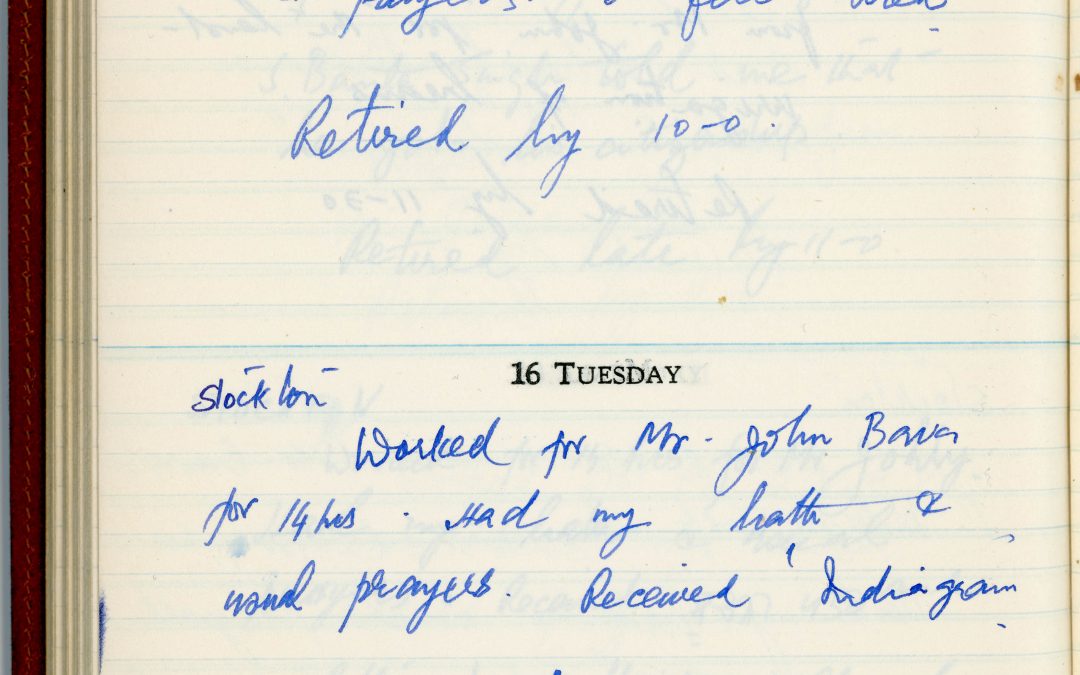 prayers.
Retired by 10-0.
16 TUESDAY
Stockton
Worked for Mr. John Bava
for 14 hrs. Had my bath &
usual prayers. Received 'Indiagram